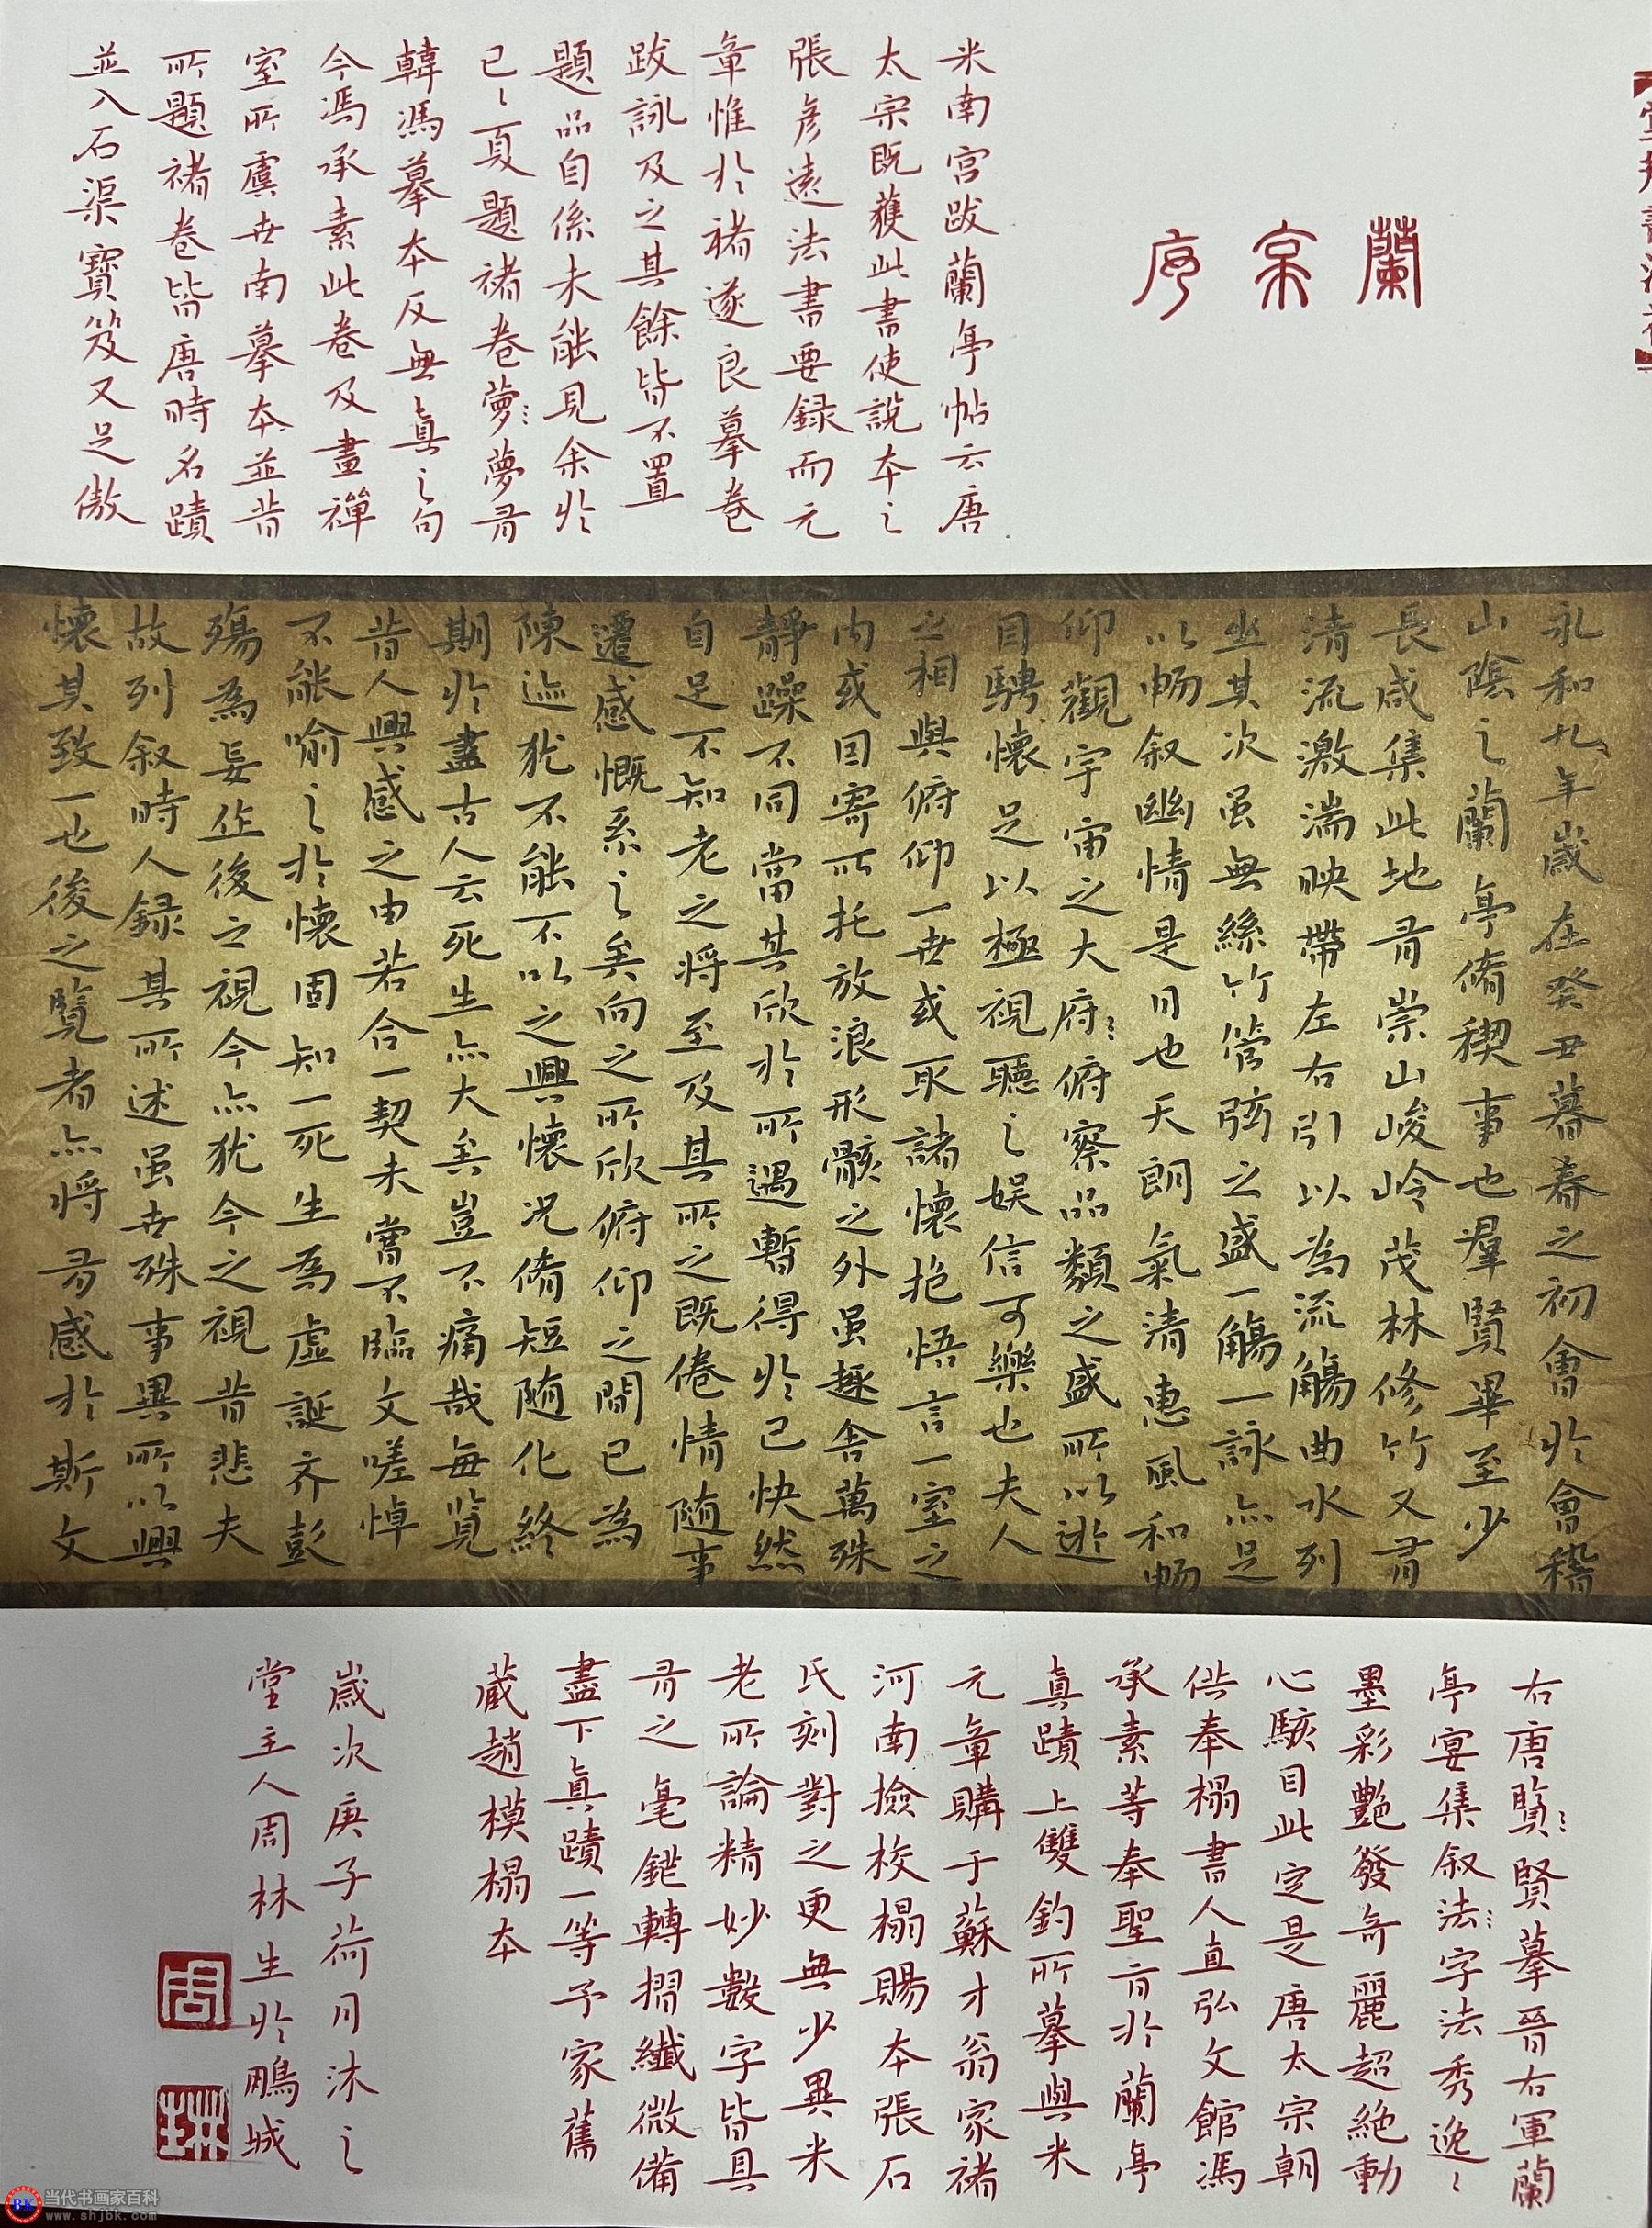 蘭亭序
米南宫跋蘭亭帖云唐
太宗既獲此書使說本之
張彦遠法書要録而元
章惟於褚遂良摹卷
跋詠及之其餘皆不置
題品自係未能見余於
已〻夏題褚卷夢〻夢有
韓馮摹本反無真之句
今馮承素此卷及畫禅
室所虞世南摹本並昔
所題褚卷皆唐時名蹟
並入石渠寶笈又足傲
永和九年歲在癸丑暮春之初會於會稽
山陰之蘭亭脩稧事也羣賢畢至少
長咸集此地有崇山峻岭茂林修竹又有
清流激湍映帶左右引以為流觴曲水列
坐其次虽無絲竹管弦之盛一觴一詠亦足
以畅叙幽情是日也天朗氣清惠風和畅
仰觀宇宙之大府〻俯察品類之盛所以遊
目騁懷足以極視聽之娱信可樂也夫人
之相與俯仰一世或取諸懷抱悟言一室之
内或因寄所托放浪形骸之外虽趣舍萬殊
静躁不同當其欣於所遇暫得於己快然
自足不知老之将至及其所之既倦情随事
遷感慨系之矣向之所欣俯仰之間已為
陳迹犹不能不以之興懷况脩短随化終
期於盡古人云死生亦大矣豈不痛哉每覧
昔人興感之由若合一契未嘗不臨文嗟悼
不能喻之於懷固知一死生為虚誕齐彭
殤為妄作後之視今亦犹今之視昔悲夫
故列叙時人録其所述虽世殊事異所以興
懷其致一也後之覽者亦将有感於斯文
右唐賢〻賢摹晉右軍蘭
亭宴集叙法〻字法秀逸〻
墨彩艷發奇麗超絶動
心駭目此定是唐太宗朝
供奉榻書人直弘文館馮
承素等奉聖旨於蘭亭
真蹟上雙鈎所摹與米
元章購于蘇才翁家褚
河南撿校榻賜本張石
氏刻對之更無少異米
老所論精妙數字皆具
有之毫鋩轉摺纖微備
盡下真蹟一等予家舊
蔵趙模榻本
歲次庚子荷月沐之
堂主人周林生於鵰城
周
林
当代书画家百科
www.shjbk.com